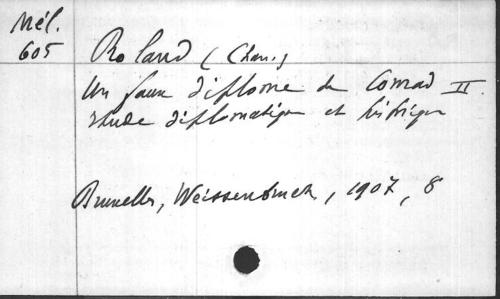 Mél.
605
Roland (Chan.)
Un faux diplome de Conrad II.
étude diplomatique et histrique
Bruxelles, Weissenbruch, 1907, 8